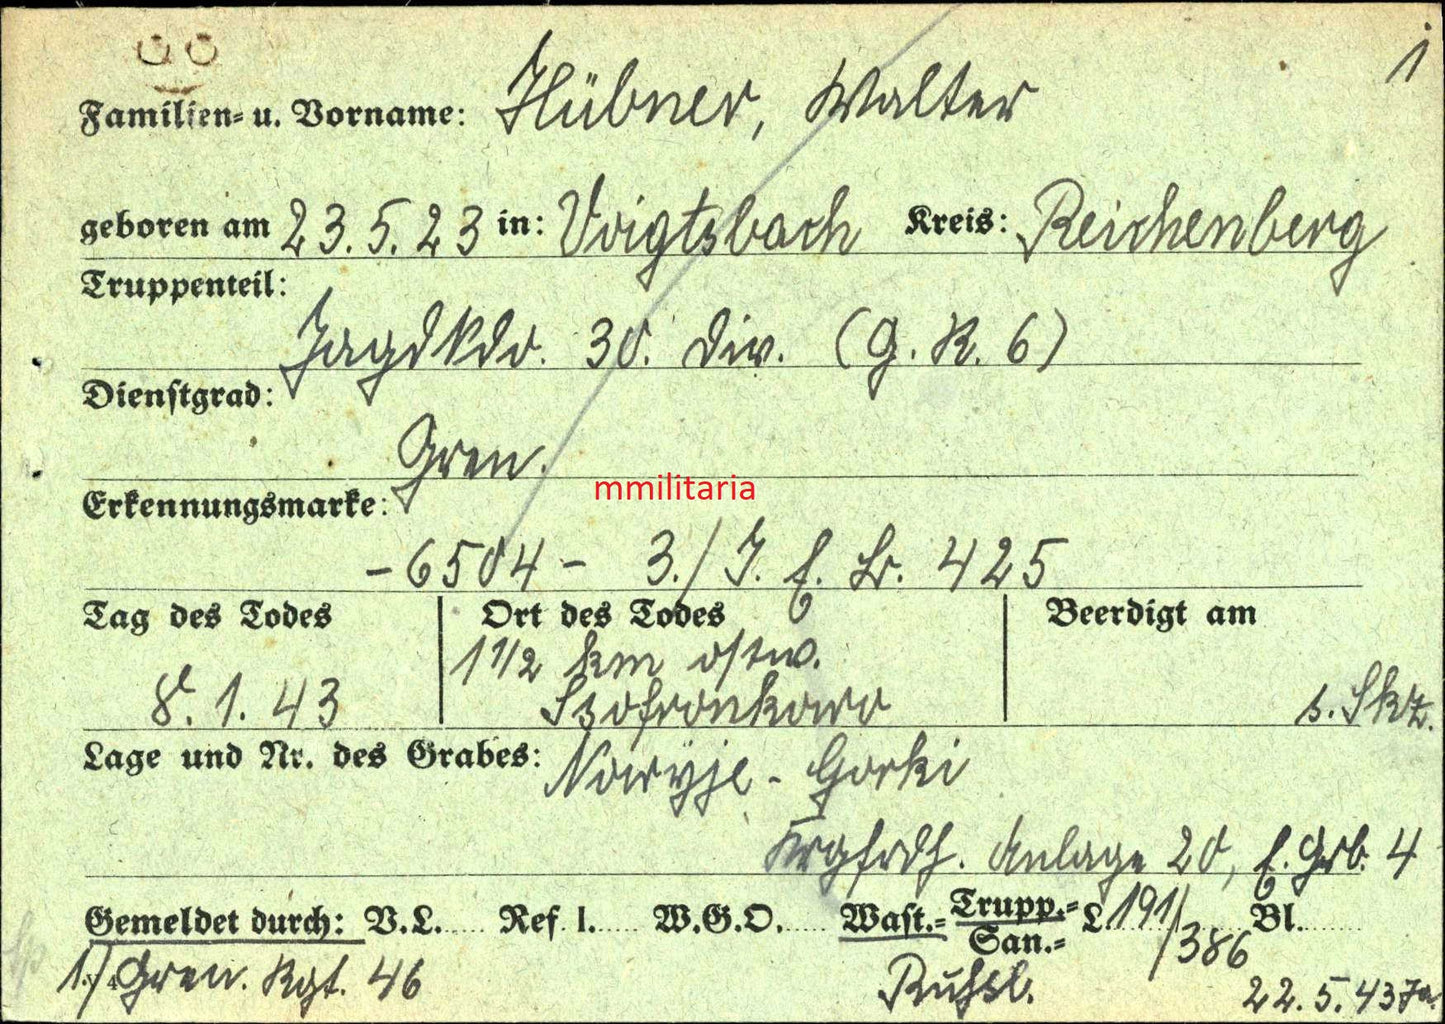 i
Familien- u. Vorname: Hübner, Walter
geboren am 23.5.23 in: Voigtsbach Kreis: Reichenberg
Truppenteil:
Jagdkdo. 30. Div. (G. R. 6)
Dienstgrad:
Gren.
mmilitaria
Erkennungsmarke:
-6504- 3./ J. E. Br. 425
Tag des Todes Ort des Todes Beerdigt am
1 1/2 km ostw.
8.1.43 Ssofronkowo s. Skz.
Lage und Nr. des Grabes: Nowyje - Gorki
Krgfrdh. Anlage 20, E. Grb. 4
Gemeldet durch: V.L. Ref. I. W.G.O. Wast.- Trupp.- San.- L. 191/386 Bl.
1./ Gren. Rgt. 46 Rußl. 22.5.43